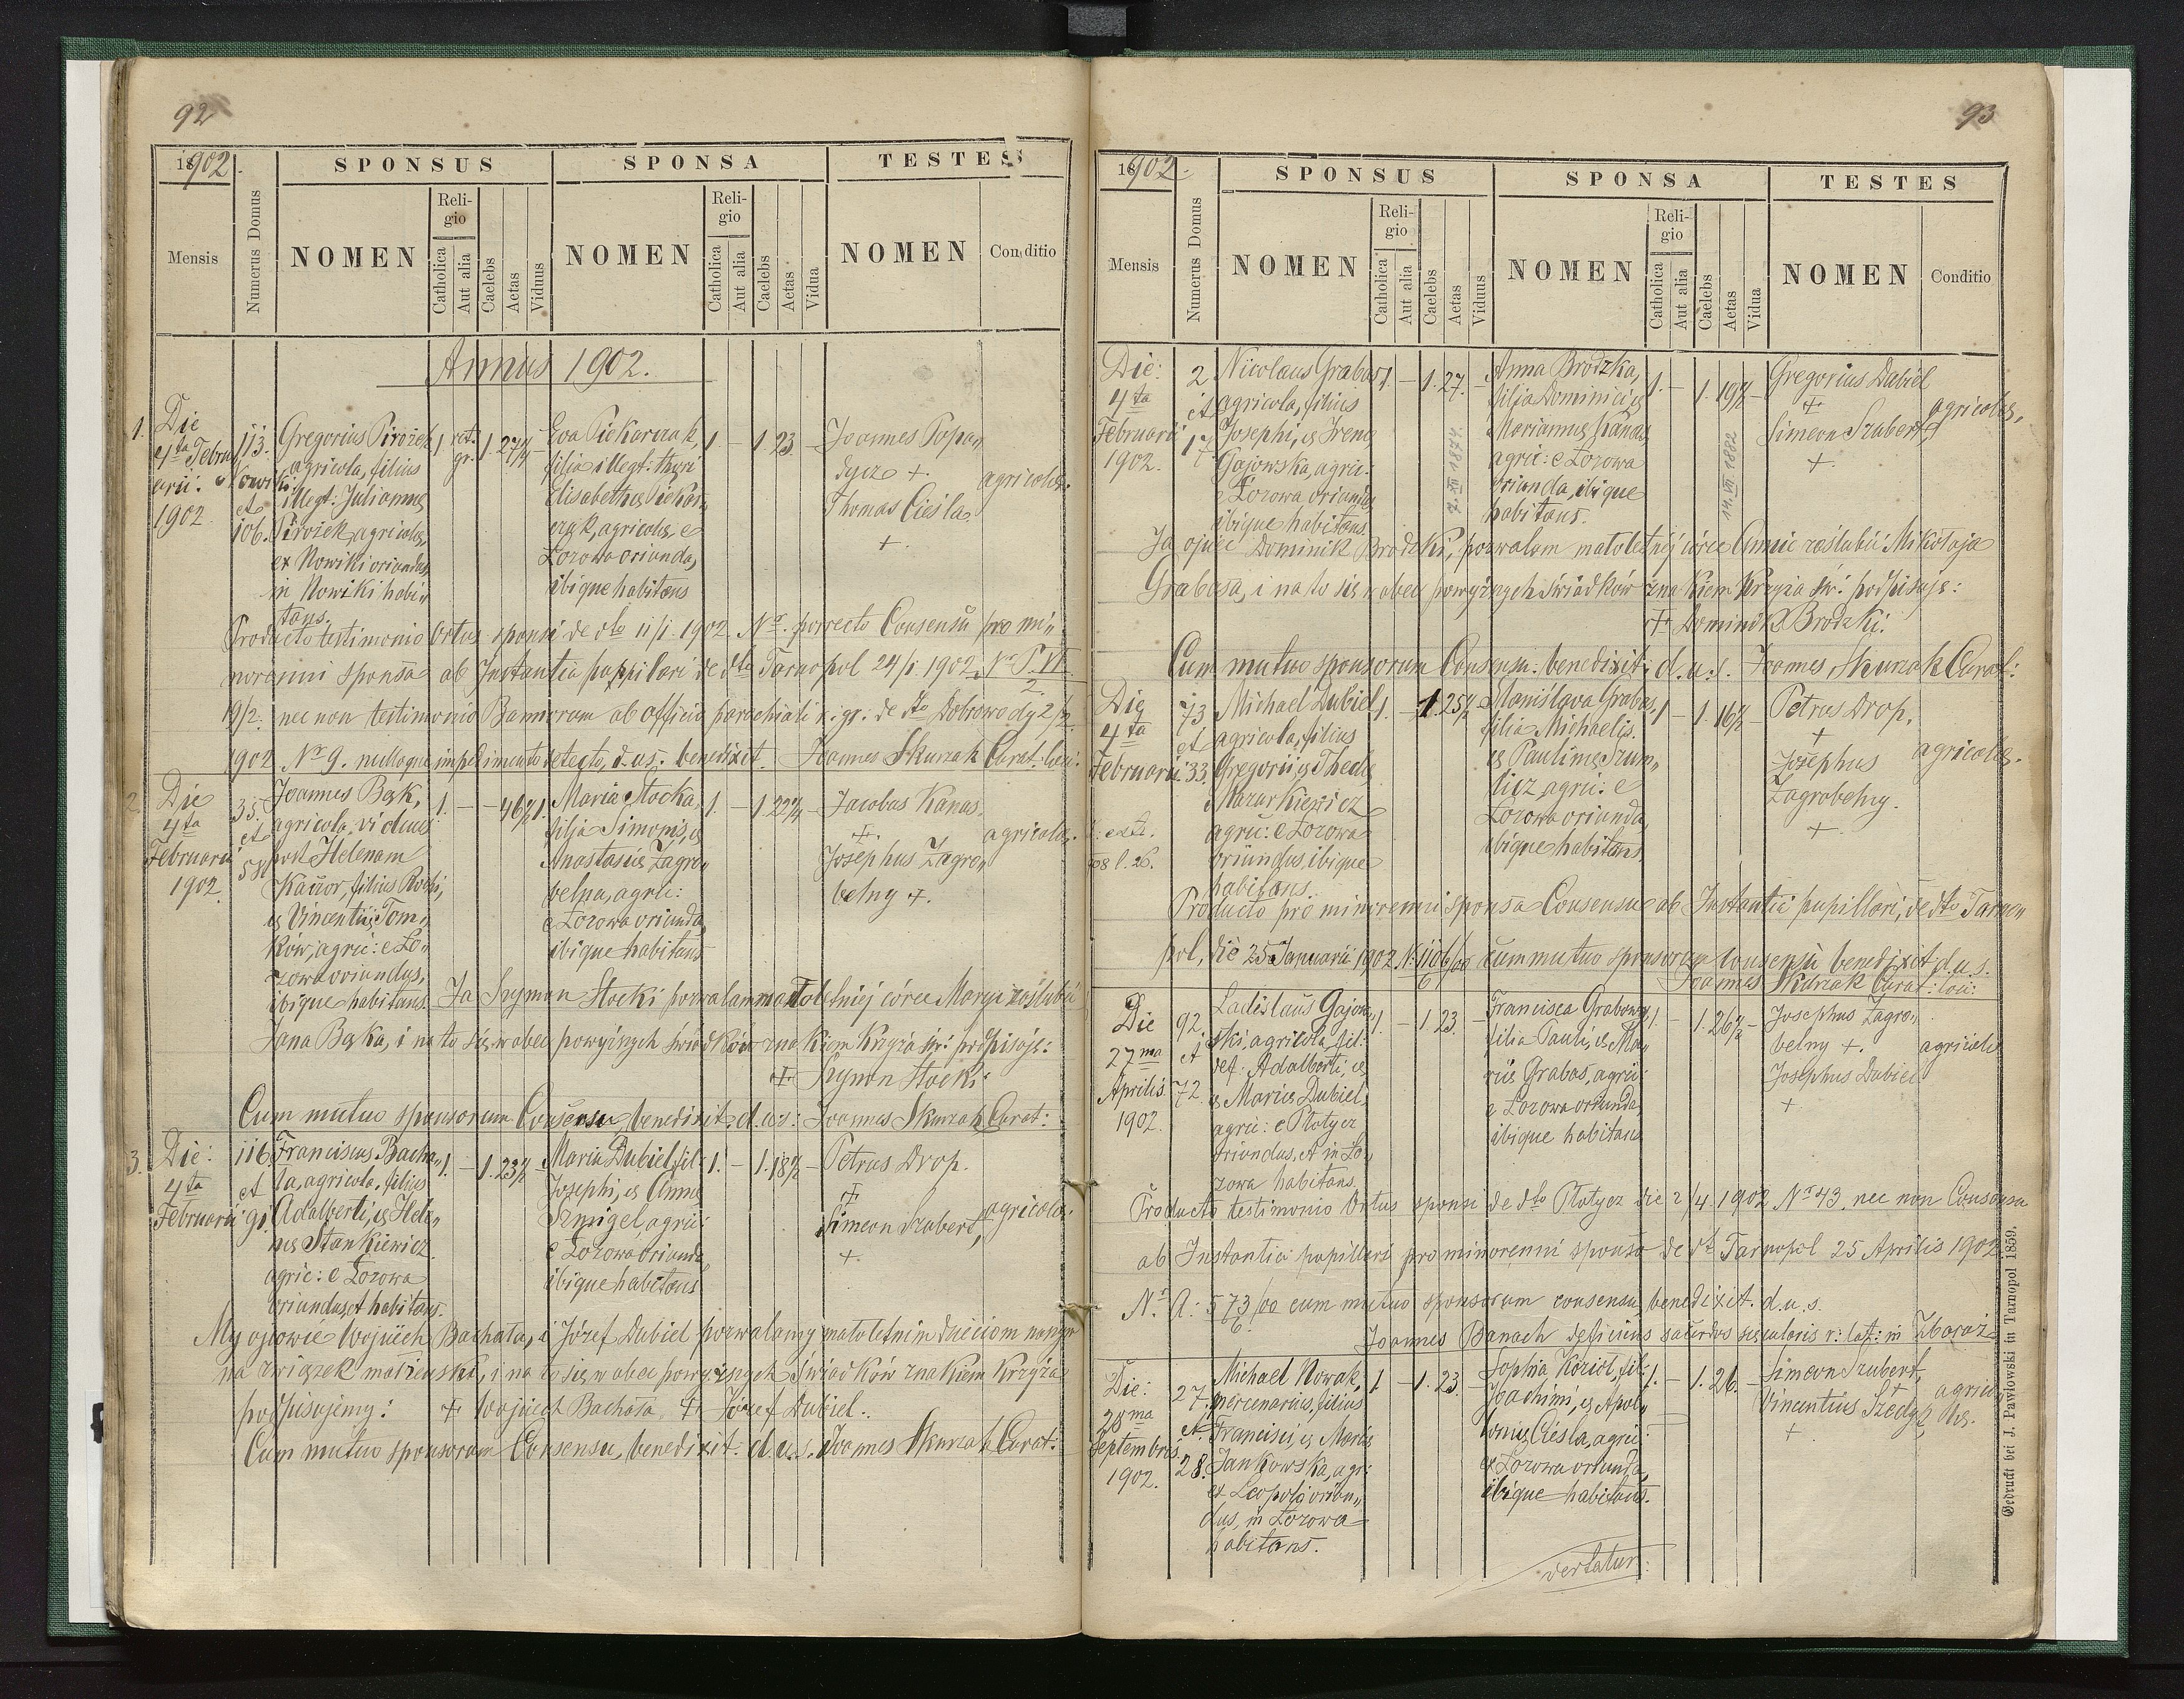 92
1902.
SPONSUS
SPONSA
TESTES
Mensis
Numerus Domus
NOMEN
Religio
Catholica
Aut alia
Caelebs
Aetas
Viduus
NOMEN
Religio
Catholica
Aut alia
Caelebs
Aetas
Vidua
NOMEN
Conditio
Annus 1902.
1.
Die
4ta Febru
arii.
1902.
113.
et
106.
Gregorius Pirożek
agricola, filius
illegt: Julianna
Pirożek, agricola,
ex Nowiki oriundus
in Nowiki habi„
tans.
1 rt. gr. 1. 27¼
Eva Piekarczak,
filia illegt: thori
Elisabetha Piekar„
czak, agricola, e
Łozowa oriunda,
ibique habitans
1. – 1. 23. –
Joannes Popa„
dycz +.
Thomas Cieśla
+.
agricolæ.
Producto testimonio Ortus sponsi de dto 11/1. 1902 No. porrecto Consensu pro mi„
norenni sponsa ab Instantia pupillari de dto Tarnopol 24/1 1902. Nr P. VI
19/2. nec non testimonio Bannorum ab officio parochiali r. gr. de dto Dobrowody 2/2
1902 Nr 9. nulloque impedimento detecto, d. u. s. benedixit. Joannes Skurzak Curat. loci:
2.
Die
4ta
Februarii
1902.
35.
et
58
Joannes Bąk,
agricola, viduus
post Helenam
Kaczor, filius Rochi,
et Vincentiæ Tom„
ków, agric: e Ło„
zowa oriundus,
ibique habitans.
1. – – 46½ 1.
Maria Stocka,
filia Simonis, et
Anastasiæ Zagro„
belna, agric:
e Łozowa oriunda,
ibique habitans
1. – 1. 22¾ –
Jacobus Kanas.
+.
Josephus Zagro„
belny +.
agricolæ.
Ja Szymon Stocki pozwalam małoletniej córce Maryi zaślubić
Jana Bąka, i na to się w obec powyższych świadków znakiem Krzyża św: podpisuje:
+ Szymon Stocki.
Cum mutuo sponsorum Consensu, benedixit d. u. s: Joannes Skurzak Curat:
3.
Die:
4ta
Februarii
116.
et
91.
Franciscus Bacha„
ta, agricola, filius
Adalberti, et Hele„
næ Stankiewicz.
agric: e Łozowa
oriundus et habitans.
1. – 1. 23½ –
Maria Dubiel, fil:
Josephi, et Anna
Szmigel, agric:
e Łozowa oriunda,
ibique habitans
1. – 1. 18½ –
Petrus Drop.
+
Simeon Szubert,
+.
agricolæ.
My ojcowie Wojciech Bachata, i Józef Dubiel pozwalamy małoletnim dzieciom naszym
na związek małżeński, i na to się w obec powyższych świadków znakiem Krzyża
podpisujemy: + Wojciech Bachata + Józef Dubiel.
Cum mutuo sponsorum Consensu, benedixit. d. u. s. Joannes Skurzak Curat:
93
1902.
SPONSUS
SPONSA
TESTES
Mensis
Numerus Domus
NOMEN
Religio
Catholica
Aut alia
Caelebs
Aetas
Viduus
NOMEN
Religio
Catholica
Aut alia
Caelebs
Aetas
Vidua
NOMEN
Conditio
Die:
4ta
Februarii
1902.
2
et
17
Nicolaus Grabas
agricola, filius
Josephi, et Irena
Gajowska, agric:
e Łozowa oriundus
ibique habitans.
1. – 1. 27. –
7.XII 1874.
Anna Brodzka,
filia Dominici et
Marianna Kanas,
agric: e Łozowa
oriunda, ibique
habitans.
1. – 1. 19½ –
14.VII 1882
Gregorius Dubiel
+
Simeon Szubert
+.
agricolæ.
Ja ojciec Dominik Brodzki, pozwalam małoletnéj córce Annie zaślubić Mikołaja
Grabasa, i na to się w obec powyższych świadków znakiem Krzyża św: podpisuje:
+ Dominik Brodzki.
Cum mutuo sponsorum Consensu. benedixit. d. u. s. Joannes Skurzak Curat:
Die
4ta
Februarii
73
et
33
Michael Dubiel
agricola, filius
Gregorii, et Thecla
Mazurkiewicz
agric: e Łozowa
oriundus, ibique
habitans.
1. – 1. 25½
Stanislava Grabas,
filia Michaelis.
et Paulina Szum„
licz, agric: e
Łozowa oriunda,
ibique habitans.
1 – 1. 16½ –
Petrus Drop.
+
Josephus
Zagrobelny.
+.
agricolæ.
Producto pro minorenni sponsa Consensu ab Instantia pupillari, de dto Tarno„
pol, die 25 Januarii 1902 cum mutuo sponsorum consensu benedixit d. u. s.
Joannes Skurzak Curat: loci:
Die
27ma
Aprilis
1902.
92.
et
72.
Ladislaus Gajow„
ski, agricola, fil:
def. Adalberti, et
et Maria Dubiel,
agric: e Płotycz
oriundus, et in Ło„
zowa habitans.
1. – 1. 23. –
Francisca Grabowy,
filia Pauli, et Ma„
ria Grabas, agric:
e Łozowa oriunda,
ibique habitans
1. – 1. 26½ –
Josephus Zagro„
belny +.
Josephus Dubiel
+
agricolæ
Producto testimonio Ortus sponsi de dto Płotycz die 2/4. 1902 No 43. nec non Consensu
ab Instantia pupillari pro minorenni sponso de dto Tarnopol 25 Aprilis 1902
Nr. A: 573/00 cum mutuo sponsorum consensu, benedixit. d. u. s.
Joannes Banach deficiens sacerdos sæcularis r: lat: in Zbaraż
Die:
28ma
Septembris
1902.
27.
et
28.
Michael Nowak,
mercenarius, filius
Francisci et Maria
Jankowska, agr:
ex Leopoli oriun„
dus, in Łozowa
habitans.
1 – 1. 23. –
Sophia Kozioł, fil:
Joachimi, et Apol„
lonia Cieśla, agric:
ex Łozowa oriunda,
ibique habitans.
1. – 1. 26. –
Simeon Szubert,
Vincentius Szedyk
+
agrico
læ.
vertatur:
Gedruckt bei J. Pawłowski in Tarnopol 1859.